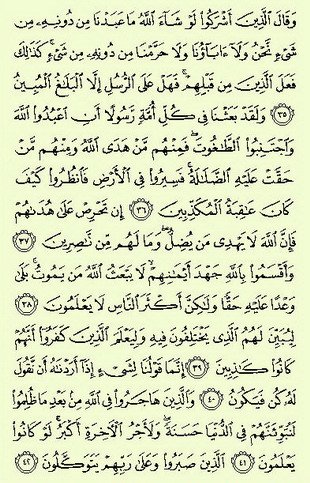 وَقَالَ الَّذِينَ أَشْرَكُوا۟ لَوْ شَآءَ اللَّهُ مَا عَبَدْنَا مِن دُونِهِۦ مِن
شَىْءٍ نَّحْنُ وَلَآ ءَابَآؤُنَا وَلَا حَرَّمْنَا مِن دُونِهِۦ مِن شَىْءٍ كَذَٰلِكَ
فَعَلَ الَّذِينَ مِن قَبْلِهِمْ فَهَلْ عَلَى الرُّسُلِ إِلَّا الْبَلَٰغُ الْمُبِينُ
﴿٣٥﴾ وَلَقَدْ بَعَثْنَا فِى كُلِّ أُمَّةٍ رَّسُولًا أَنِ اعْبُدُوا۟ اللَّهَ
وَاجْتَنِبُوا۟ الطَّٰغُوتَ فَمِنْهُم مَّنْ هَدَى اللَّهُ وَمِنْهُم مَّنْ
حَقَّتْ عَلَيْهِ الضَّلَٰلَةُ فَسِيرُوا۟ فِى الْأَرْضِ فَانظُرُوا۟ كَيْفَ
كَانَ عَٰقِبَةُ الْمُكَذِّبِينَ ﴿٣٦﴾ إِن تَحْرِصْ عَلَىٰ هُدَىٰهُمْ
فَإِنَّ اللَّهَ لَا يَهْدِى مَن يُضِلُّ وَمَا لَهُم مِّن نَّٰصِرِينَ
﴿٣٧﴾
وَأَقْسَمُوا۟ بِاللَّهِ جَهْدَ أَيْمَٰنِهِمْ لَا يَبْعَثُ اللَّهُ مَن يَمُوتُ بَلَىٰ
وَعْدًا عَلَيْهِ حَقًّا وَلَٰكِنَّ أَكْثَرَ النَّاسِ لَا يَعْلَمُونَ ﴿٣٨﴾
لِيُبَيِّنَ لَهُمُ الَّذِى يَخْتَلِفُونَ فِيهِ وَلِيَعْلَمَ الَّذِينَ كَفَرُوٓا۟ أَنَّهُمْ
كَانُوا۟ كَٰذِبِينَ ﴿٣٩﴾ إِنَّمَا قَوْلُنَا لِشَىْءٍ إِذَآ أَرَدْنَٰهُ أَن نَّقُولَ
لَهُۥ كُن فَيَكُونُ ﴿٤٠﴾ وَالَّذِينَ هَاجَرُوا۟ فِى اللَّهِ مِنۢ بَعْدِ مَا ظُلِمُوا۟
لَنُبَوِّئَنَّهُمْ فِى الدُّنْيَا حَسَنَةً وَلَأَجْرُ الْءَاخِرَةِ أَكْبَرُ لَوْ كَانُوا۟
يَعْلَمُونَ ﴿٤١﴾ الَّذِينَ صَبَرُوا۟ وَعَلَىٰ رَبِّهِمْ يَتَوَكَّلُونَ ﴿٤٢﴾